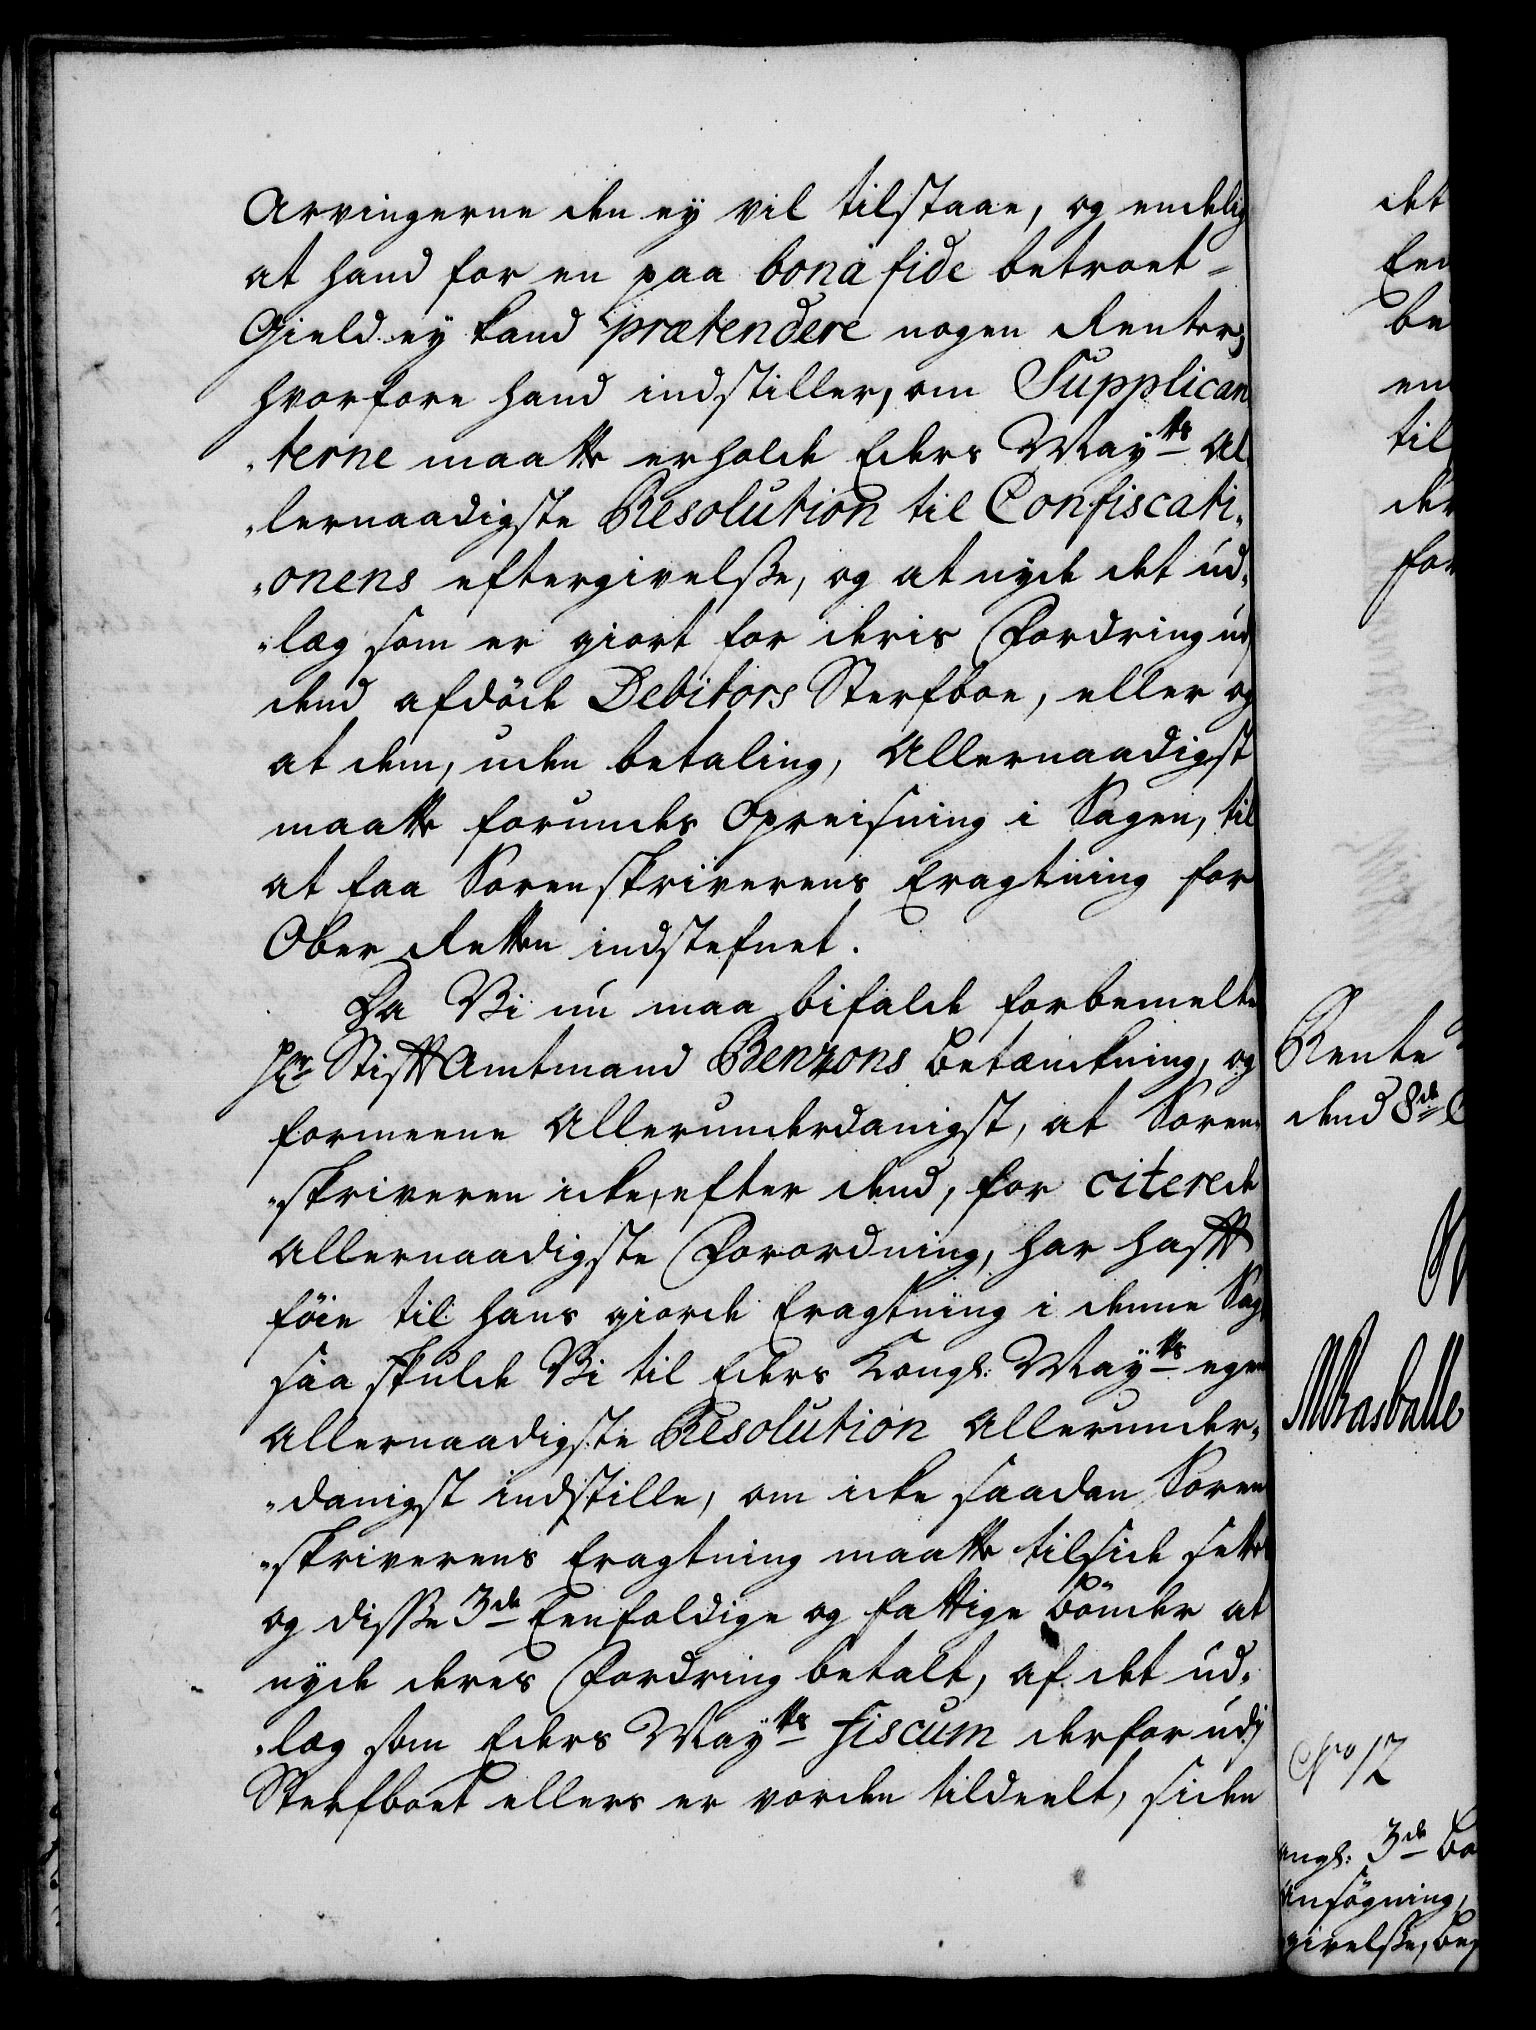 Arvingerne den ey vil tilstaae, og endelig
at hand for en paa bona fide betroet
Gield ey kand prætendere nogen Renter,
hvorfore hand indstiller, om Supplican
„terne maatte erholde Eders Mayts Al„
„lernaadigste Resolution til Confiscati„
„onens eftergivelsse, og at nyde det ud„
„læg som er giort for deris Fordring ud
dend afdöde Debitors Sterfboe, eller og
at dem, uden betaling, Allernaadigst
maatte forundes Opreisning i Sagen, til
at faa Sorenskriverens Eragtning for
Ober Retten indstefnet.
Da Vi nu maa bifalde forbemelte
Hr Stifft Amtmand Benzons Betænkning, og
formeene Allerunderdanigst, at Soren„
„skriveren icke, efter dend, for citerede
Allernaadigste Forordning, har hafft
föie til hans giorde Eragtning i denne Sag,
saa skulde Vi til Eders Kongl: Mayts egen
Allernaadigste Resolution Allerunder„
„danigst indstille, om icke saadan Soren
„skriverens Eragtning maatte tilside sette
og disse 3de Eenfoldige og fattige Bönder at
nyde deres Fordring betalt, af det ud„
„læg som Eders Mayts Fiscum derfor udj
Sterfboet ellers er vorden tildeelt, siden
det
Een
be
en
til
der
for
Rente
dend 8de
No 12
angl: 3de Bö
Ansögning,
givelsse, be